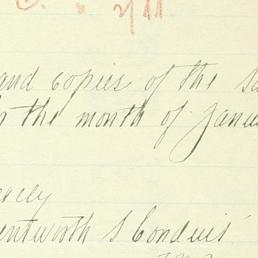 2/11
and copies of the
the month of Janu
erely
entworth S Conduis